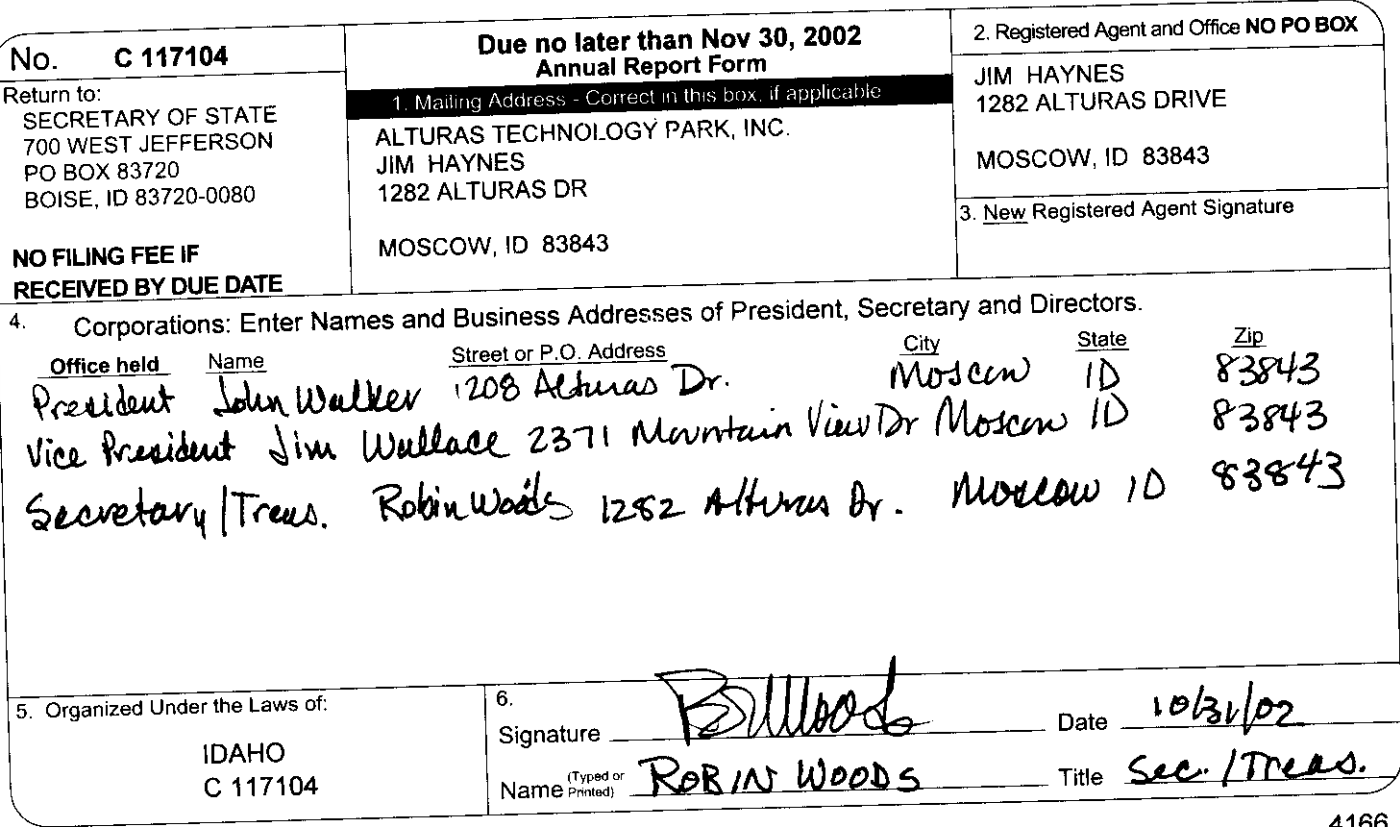 No. C 117104
Return to:
SECRETARY OF STATE
700 WEST JEFFERSON
PO BOX 83720
BOISE, ID 83720-0080
NO FILING FEE IF
RECEIVED BY DUE DATE
Due no later than Nov 30, 2002
Annual Report Form
1. Mailing Address - Correct in this box, if applicable
ALTURAS TECHNOLOGY PARK, INC.
JIM HAYNES
1282 ALTURAS DR
MOSCOW, ID 83843
2. Registered Agent and Office NO PO BOX
JIM HAYNES
1282 ALTURAS DRIVE
MOSCOW, ID 83843
3. New Registered Agent Signature
4. Corporations: Enter Names and Business Addresses of President, Secretary and Directors.
Office held Name Street or P.O. Address City State Zip
President John Walker 1208 Alturas Dr. Moscow ID 83843
Vice President Jim Wallace 2371 Mountain View Dr Moscow ID 83843
Secretary/Treas. Robin Woods 1282 Alturas Dr. Moscow ID 83843
5. Organized Under the Laws of:
IDAHO
C 117104
6.
Signature RWoods Date 10/31/02
Name (Typed or Printed) ROBIN WOODS Title Sec./Treas.
4166